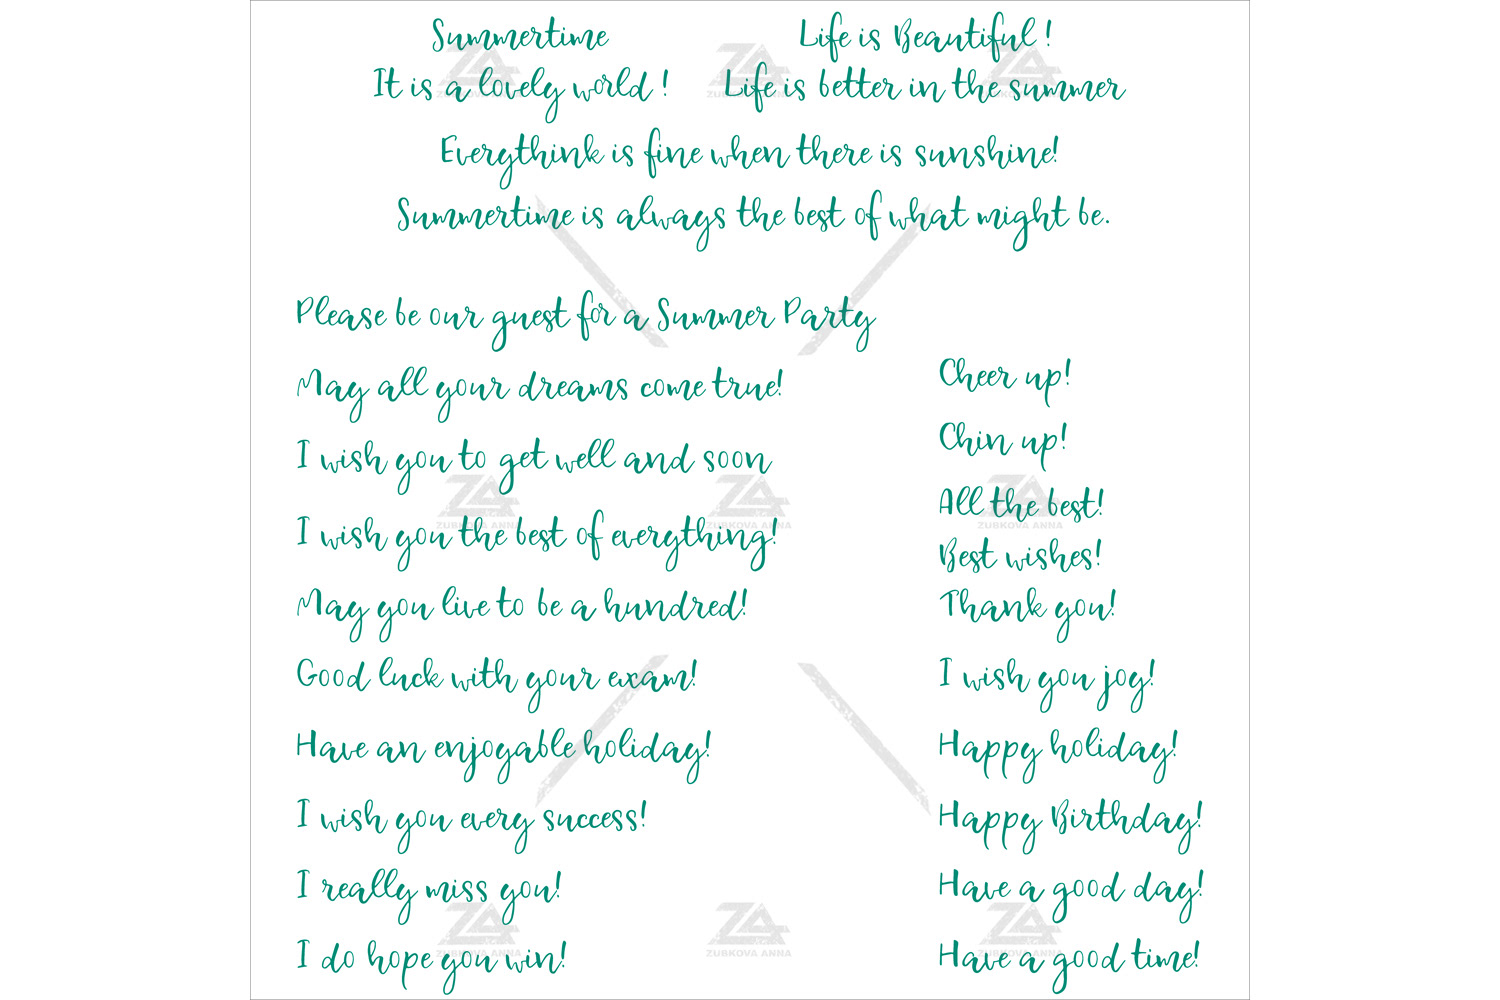 Summertime
Life is Beautiful !
It is a lovely world !
Life is better in the summer
Everythink is fine when there is sunshine!
Summertime is always the best of what might be.
Please be our guest for a Summer Party
May all your dreams come true!
I wish you to get well and soon
I wish you the best of everything!
May you live to be a hundred!
Good luck with your exam!
Have an enjoyable holiday!
I wish you every success!
I really miss you!
I do hope you win!
Cheer up!
Chin up!
All the best!
Best wishes!
Thank you!
I wish you joy!
Happy holiday!
Happy Birthday!
Have a good day!
Have a good time!
ZA
ZUBKOVA ANNA
ZA
ZUBKOVA ANNA
ZA
ZUBKOVA ANNA
ZA
ZUBKOVA ANNA
ZA
ZUBKOVA ANNA
ZA
ZUBKOVA ANNA
ZA
ZUBKOVA ANNA
ZA
ZUBKOVA ANNA
ZA
ZUBKOVA ANNA